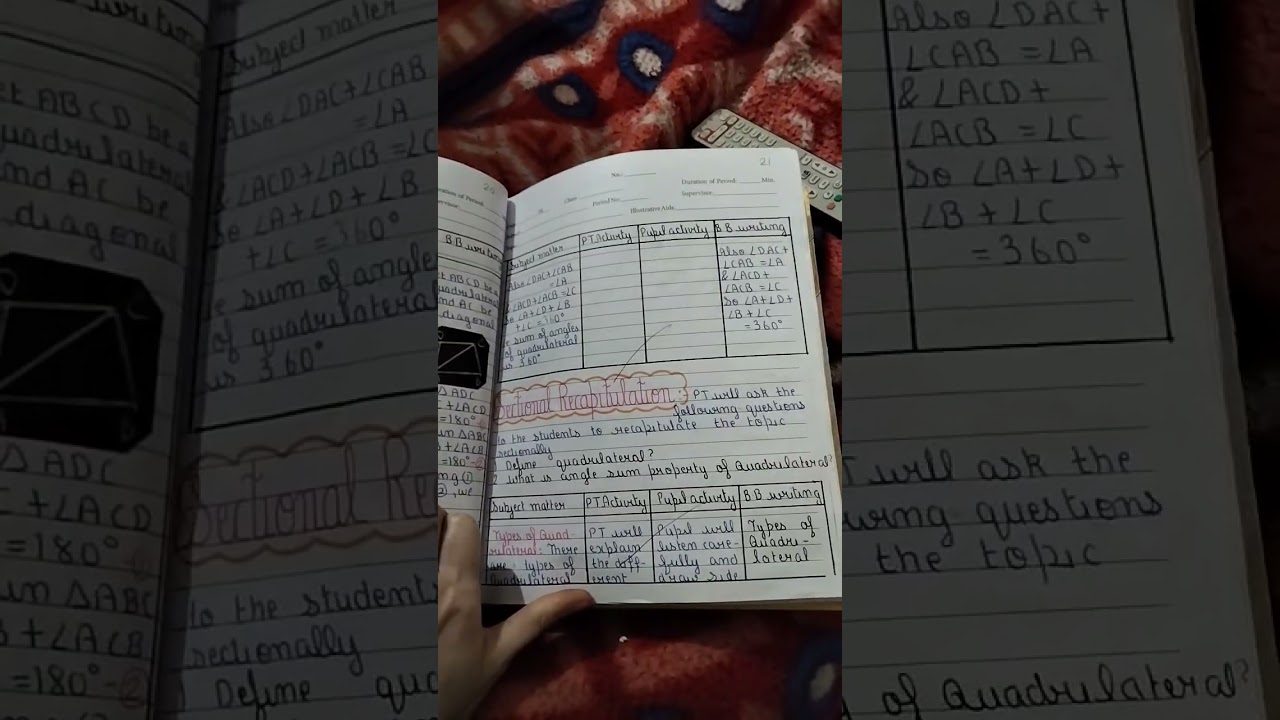 20
ration of Period:
Supervisor:
BB writin
et ABCD be a
quadrilateral
and AC be
diagonal
Δ ADC
+∠ACD
=180°
in ΔABC
+∠ACB
=180°-②
ng ①
②, we
21
No.:
Class
Duration of Period: Min.
Period No.:
Supervisor:
Illustrative Aids:
Subject matter
PT Activity
Pupil activity
BB writing
Also ∠DAC+∠CAB
=∠A
& ∠ACD+∠ACB =∠C
So ∠A+∠D+∠B
+∠C = 360°
e sum of angles
of quadrilateral
is 360°
Also ∠DAC+
∠CAB =∠A
& ∠ACD+
∠ACB =∠C
So ∠A+∠D+
∠B +∠C
=360°
Sectional Recapitulation : PT will ask the
following questions
to the students to recapitulate the topic
sectionally
Define quadrilateral?
2 what is angle sum property of Quadrilateral?
Subject matter
PT Activity
Pupil activity
BB writing
Types of Quad-
rilateral: There
are types of
Quadrilateral
PT will
explain
the diff-
erent
Pupil will
listen care-
fully and
draw side
Types of
Quadri-
lateral